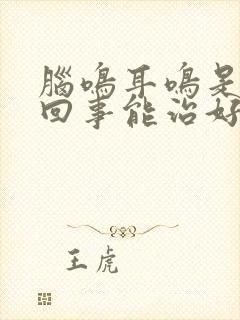 腦鳴耳鳴是
回事能治好
王虎